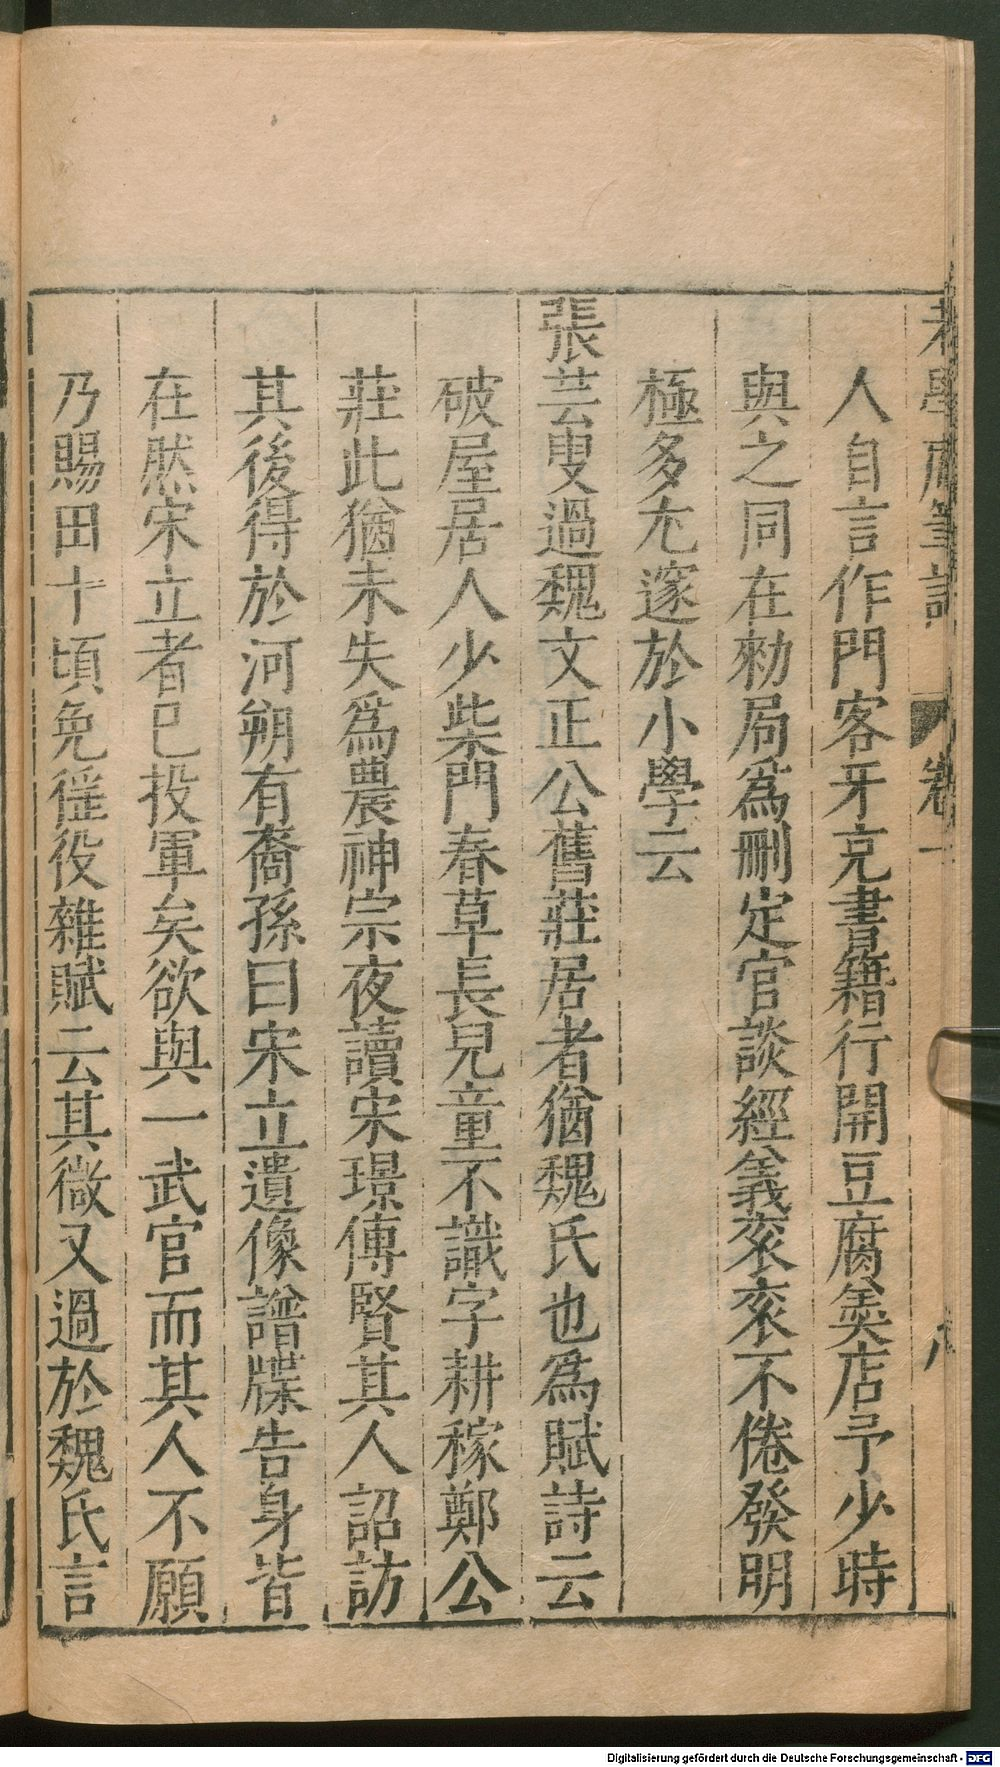 老學庵筆記　卷一　八
人自言作門客牙充書籍行開豆腐羹店予少時
與之同在勑局爲刪定官談經義袞袞不倦發明
極多尤邃於小學云
張芸叟過魏文正公舊莊居者猶魏氏也爲賦詩云
破屋居人少柴門春草長兒童不識字耕稼鄭公
莊此猶未失爲農神宗夜讀宋璟傳賢其人詔訪
其後得於河朔有裔孫曰宋立遺像譜牒告身皆
在然宋立者已投軍矣欲與一武官而其人不願
乃賜田十頃免徭役雜賦云其微又過於魏氏言
Digitalisierung gefördert durch die Deutsche Forschungsgemeinschaft - DFG